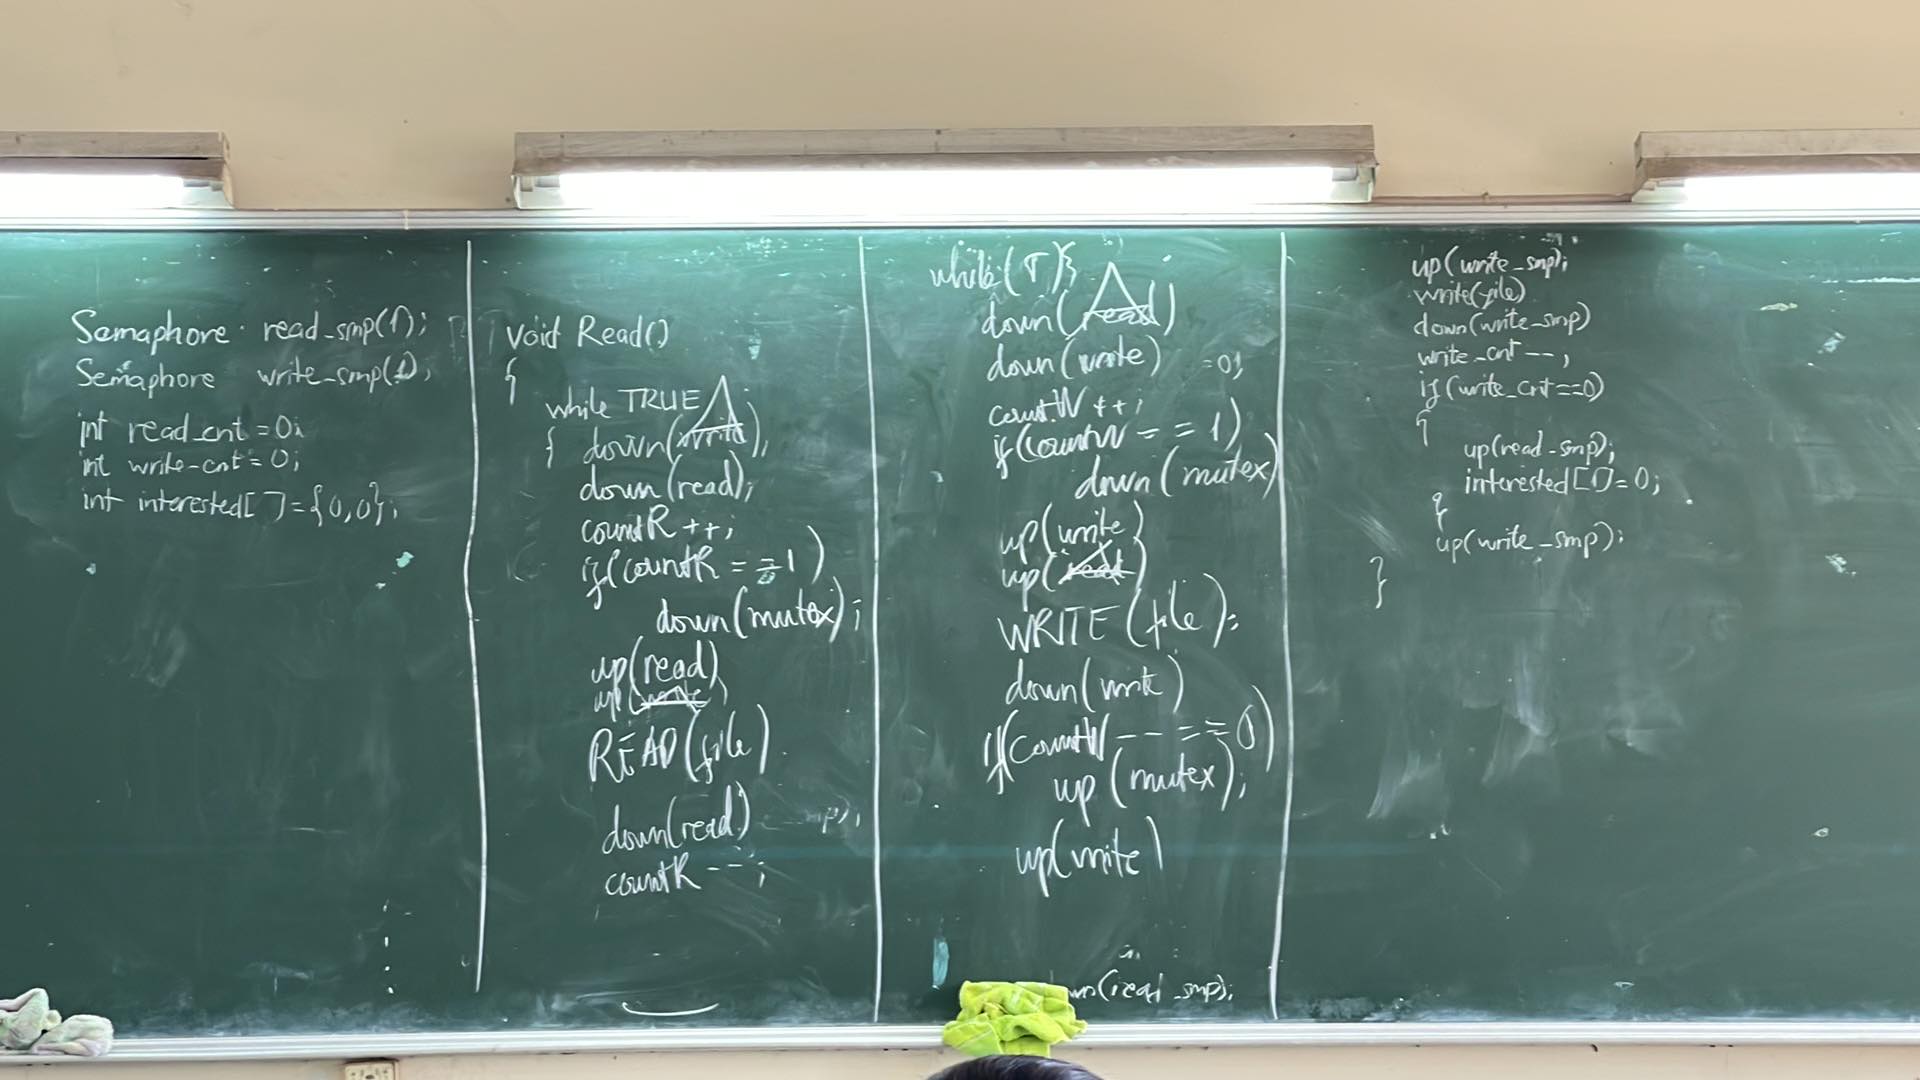 Semaphore read_smp(1);
Semaphore write_smp(1);
int read_cnt = 0;
int write-cnt = 0;
int interested[ ] = {0,0};
void Read()
{
while TRUE
{ down(write);
down(read);
countR ++;
if(countR == 1)
down(mutex);
up(read)
up(write)
READ(file)
down(read)
countR --;
while(T){
down(read)
down(write) =0;
countW ++;
if(countW == 1)
down(mutex)
up(write)
up(read)
WRITE(file);
down(write)
if(countW -- == 0)
up(mutex);
up(write)
(read_smp);
up(write_smp);
write(file)
down(write_smp)
write_cnt --;
if(write_cnt==0)
{
up(read_smp);
interested[1]=0;
}
up(write_smp);
}